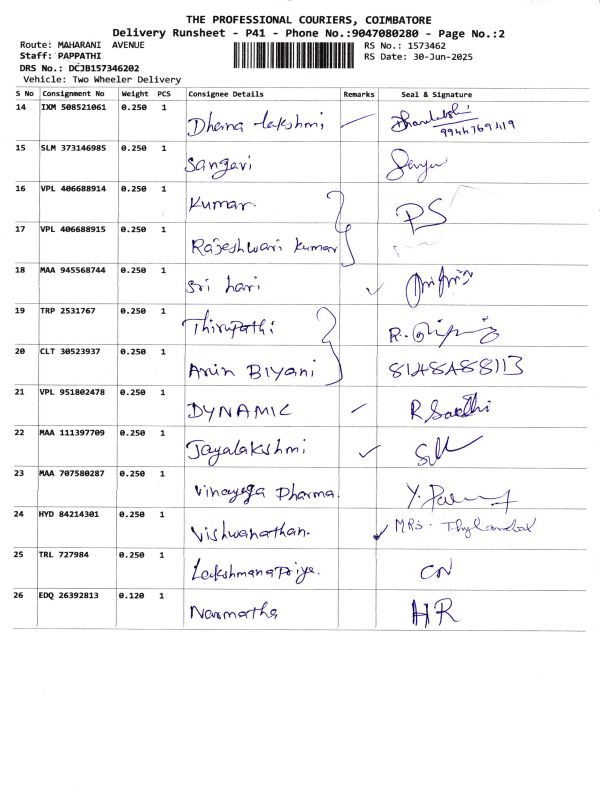 THE PROFESSIONAL COURIERS, COIMBATORE
Delivery Runsheet - P41 - Phone No.:9047080280 - Page No.:2
Route: MAHARANI AVENUE
RS No.: 1573462
Staff: PAPPATHI
RS Date: 30-Jun-2025
DRS No.: DCJB157346202
Vehicle: Two Wheeler Delivery
S No Consignment No Weight PCS Consignee Details Remarks Seal & Signature
14 IXM 508521061 0.250 1 Dhana lakshmi
9944769419
15 SLM 373146985 0.250 1 Sangavi
16 VPL 406688914 0.250 1 Kumar. PS
17 VPL 406688915 0.250 1 Rajeshwari Kumar
18 MAA 945568744 0.250 1 Sri hari
19 TRP 2531767 0.250 1 Thirupathi R.
20 CLT 30523937 0.250 1 Arun BIyani
21 VPL 951802478 0.250 1 DYNAMIC R Sakthi
22 MAA 111397709 0.250 1 Jayalakshmi
23 MAA 707580287 0.250 1 Vinayaga Pharma. Y.
24 HYD 84214301 0.250 1 Vishwanathan. MRs.
25 TRL 727984 0.250 1 Lakshmanapriya. CN
26 EDQ 26392813 0.120 1 Narmatha HR